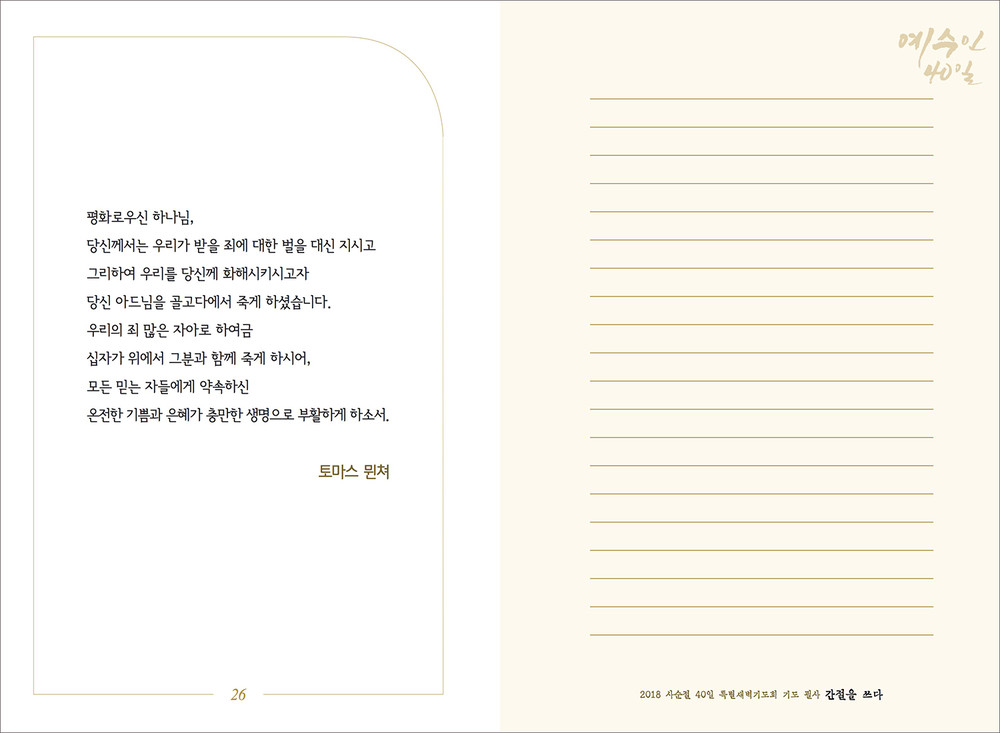 평화로우신 하나님,
당신께서는 우리가 받을 죄에 대한 벌을 대신 지시고
그리하여 우리를 당신께 화해시키시고자
당신 아드님을 골고다에서 죽게 하셨습니다.
우리의 죄 많은 자아로 하여금
십자가 위에서 그분과 함께 죽게 하시어,
모든 믿는 자들에게 약속하신
온전한 기쁨과 은혜가 충만한 생명으로 부활하게 하소서.
토마스 뮌쳐
26
예수인
40일
2018 사순절 40일 특별새벽기도회 기도 필사 간절을 쓰다